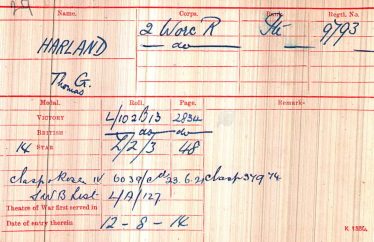 Name. Corps. Rank. Regtl. No.
HARLAND 2 Worc R Pte 9793
Thomas G. — do —
Medal. Roll. Page. Remarks.
VICTORY L/102B13 2834
BRITISH — do — do —
14 STAR L/2/3 48
Clasp & Roses IV 6039/ d/ 23.6.21 Clasp 37974
SWB List L/A/127
Theatre of War first served in
Date of entry therein 12-8-14
K 1380.